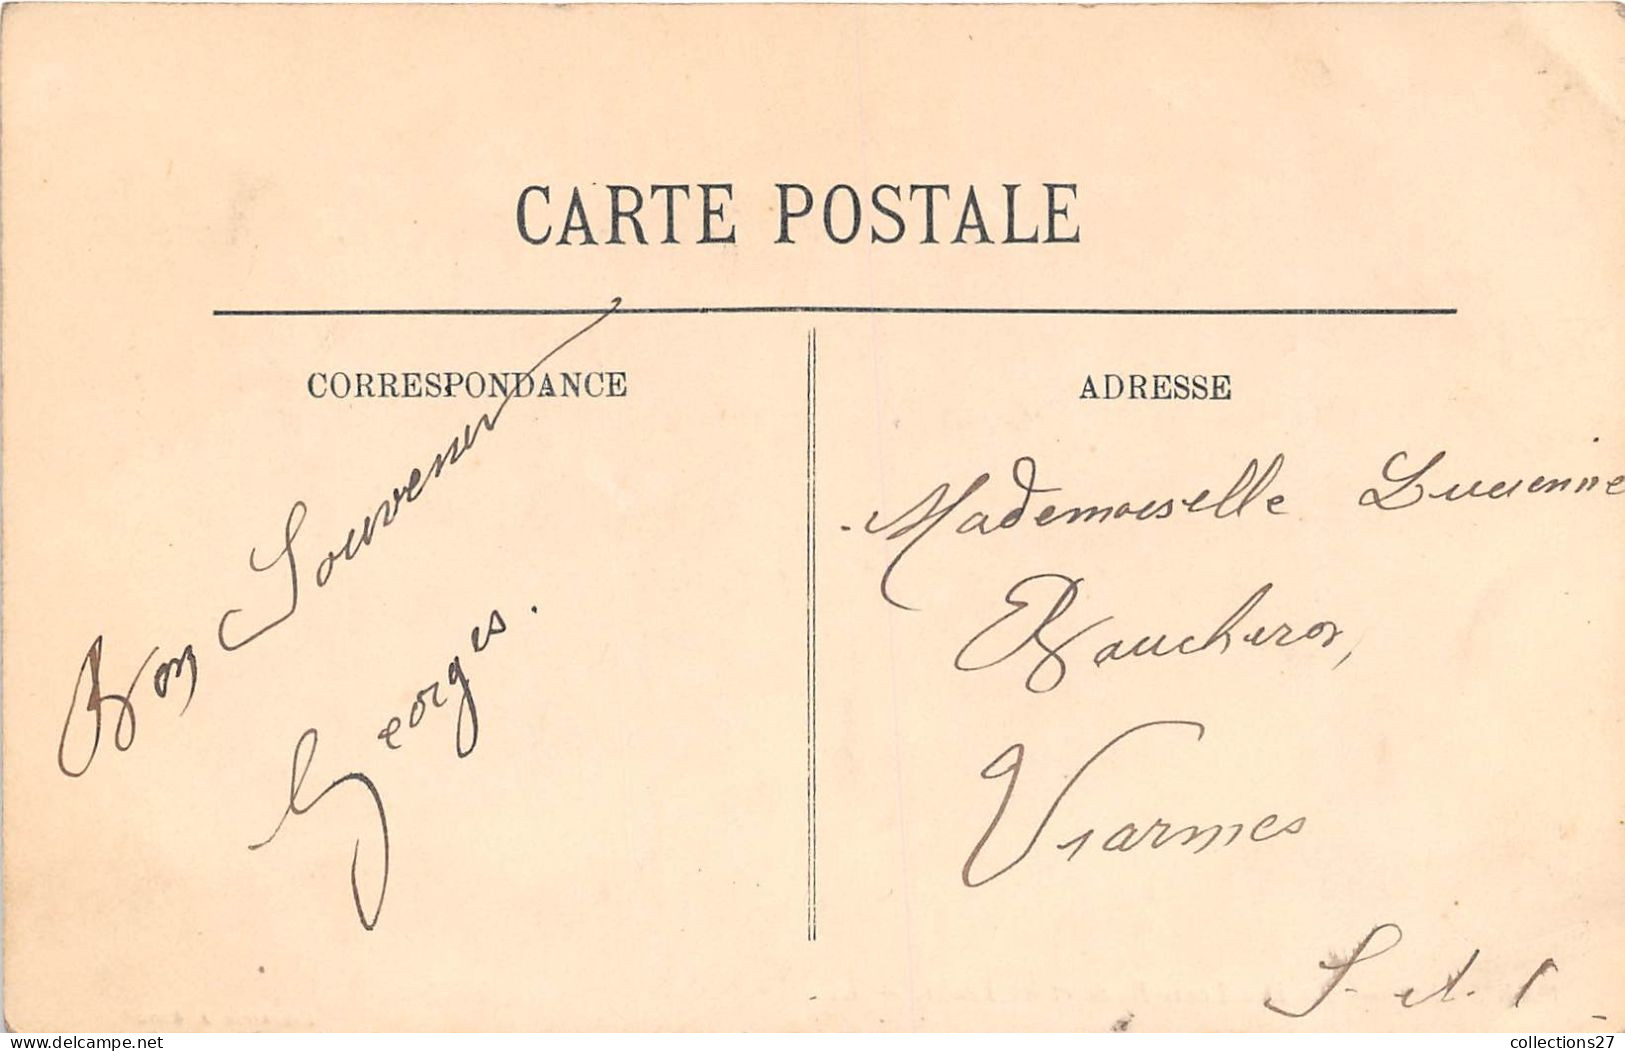 CARTE POSTALE
CORRESPONDANCE
Bon Souvenir
Georges.
ADRESSE
Mademoiselle Lucienne
Boucheron,
Viarmes
S. et
collections27
delcampe.net